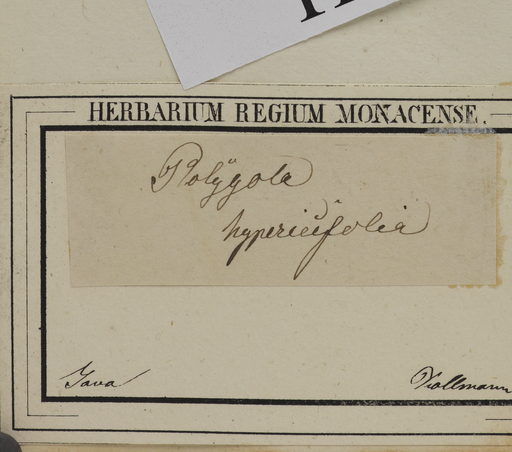 HERBARIUM REGIUM MONACENSE.
Polÿgola
hypericifolia
Java
Kollmann